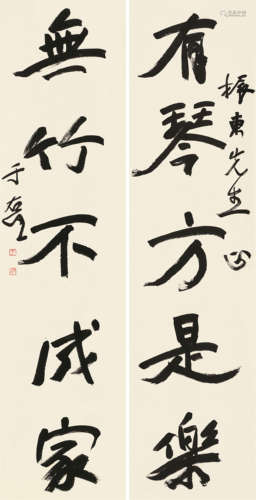 有琴方是樂
振東先生正
無竹不成家
于右任